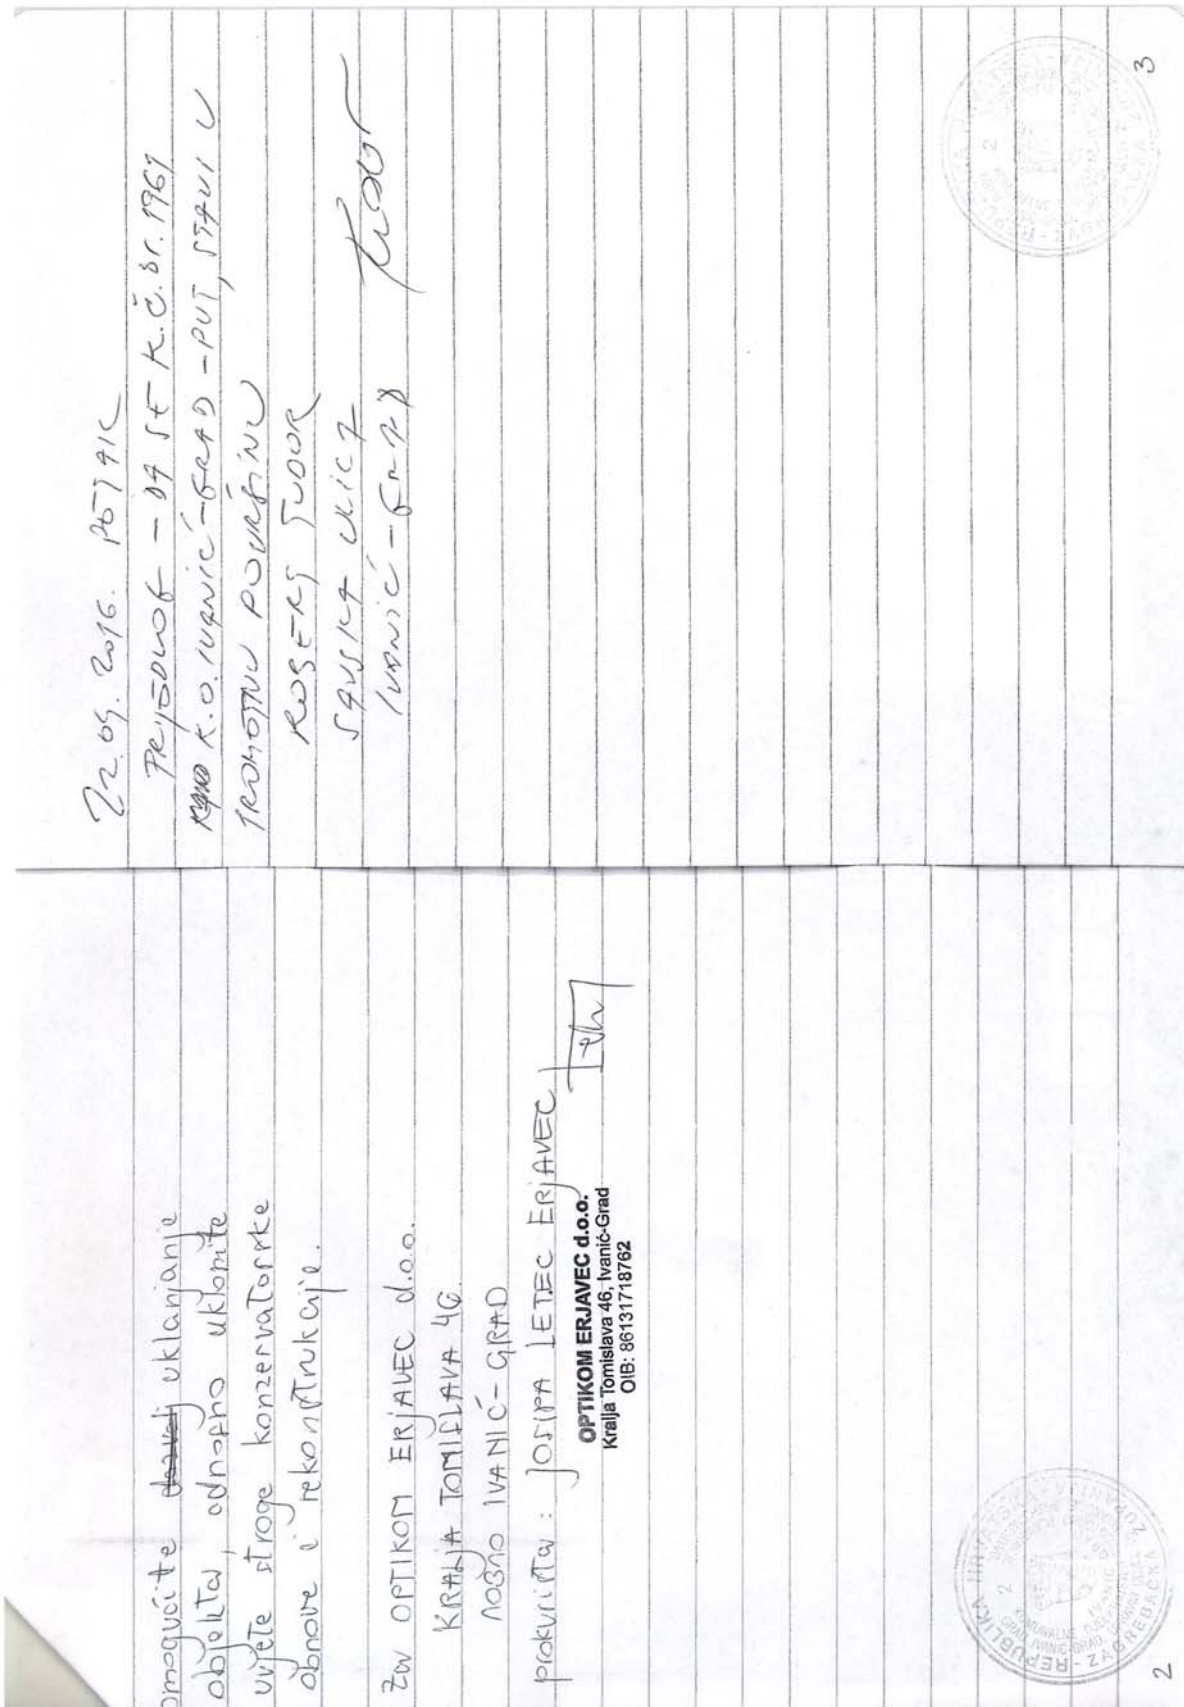 omogućite uklanjanje
objekta, odnosno uklonite
uvjete stroge konzervatorske
obnove i rekonstrukcije.
za OPTIKOM ERJAVEC d.o.o.
KRALJA TOMISLAVA 46
IVANIĆ-GRAD
prokurista: JOSIPA LETEC ERJAVEC
OPTIKOM ERJAVEC d.o.o.
Kralja Tomislava 46, Ivanić-Grad
OIB: 86131718762
REPUBLIKA HRVATSKA
ZAGREBAČKA ŽUPANIJA
2
2
22.09.2016. PETAK
PRIJEDLOG - DA SE K.Č.Br. 1967
K.O. IVANIĆ-GRAD - PUT, STAVI U
PROMETNU POVRŠINU
ROBERT TUDOR
SAVSKA ULICA
IVANIĆ-GRAD
2
3